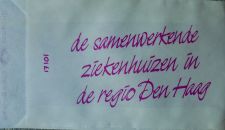 de samenwerkende
ziekenhuizen in
de regio Den Haag
17101